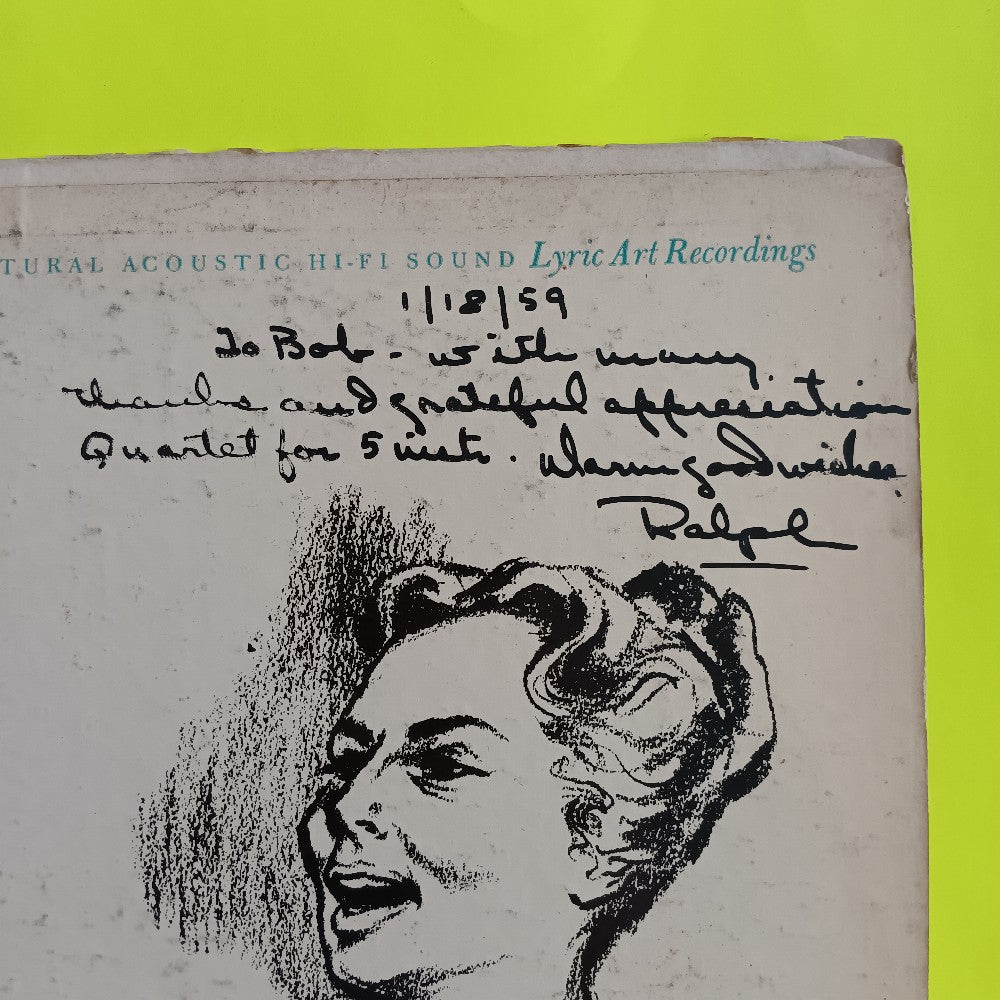 TURAL ACOUSTIC HI-FI SOUND Lyric Art Recordings
1/18/59
To Bob - with many
thanks and grateful appreciation
Quartet for 5 insts. Warm good wishes,
Ralph